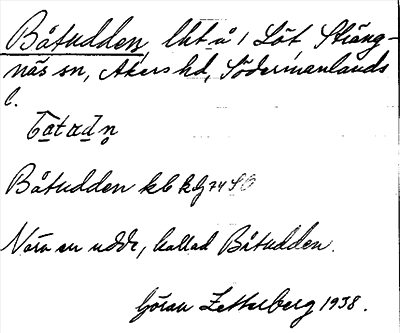 Båtudden, lht å 1 Löt, Sträng-
näs sn, Åkers hd, Södermanlands
l.
Båtudden kb
Vara en udde, kallad Båtudden.
Göran Zetterberg 1938.